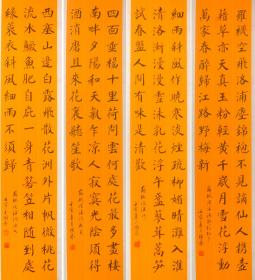 羅襪空飛洛浦塵錦袍不見謫仙人攜壺
藉草亦天真玉粉輕黃千歲藥雪花浮動
萬家春醉歸江路野梅新
細雨斜風作曉寒淡煙疏柳媚晴灘入淮
清洛漸漫漫雪沫乳花浮午盞蓼茸蒿筍
試春盤人間有味是清歡
四面垂楊十里荷問雲何處花最多畫樓
南畔夕陽和天氣乍涼人寂寞光陰須得
酒消磨且來花裏聽笙歌
西塞山邊白鷺飛散花洲外片帆微桃花
流水鱖魚肥自庇一身青箬笠相隨到處
綠蓑衣斜風細雨不須歸